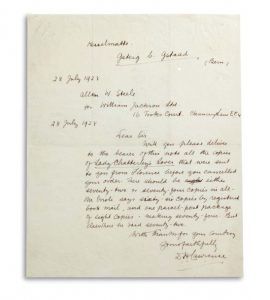 Kesselmatte
Gsteig b. Gstaad
(Bern)
28 July 1928
Allan W. Steele
for William Jackson Ltd.
16 Tookes Court. Chancery Lane E.C.4
28 July 1928
Dear Sir
Will you please deliver
to the bearer of this note all the copies
of Lady Chatterley's Lover that were sent
to you from Florence before you cancelled
your order. There should be either
seventy-two or seventy-four copies in all.
says sixty-six copies by registered
book mail, and one parcel-post package
of eight copies - making seventy-four. But
elsewhere he said seventy-two.
With thanks for your
Yours faithfully
D H Lawrence